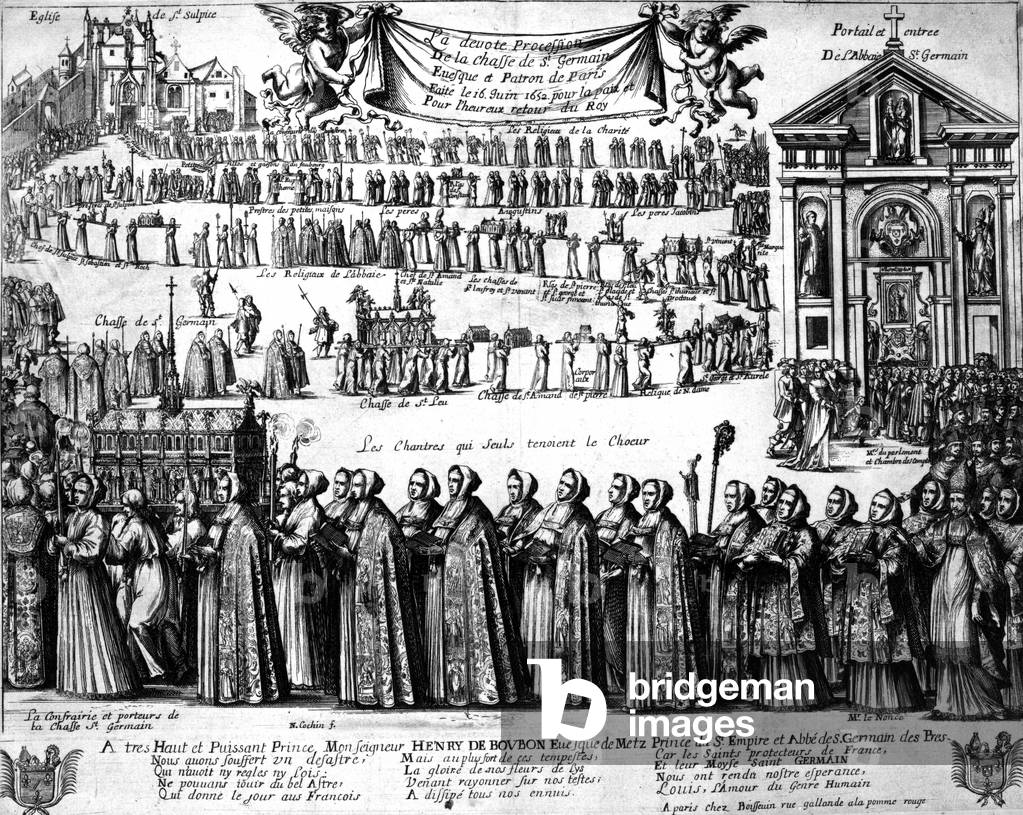 Eglise de St. Sulpice
La devote Procession
De la Chasse de St. Germain
Evesque et Patron de Paris
Faite le 16. Juin 1652. pour la paix et
Pour l'heureux retour du Roy
Portail et entree
De L'Abbaie St. Germain
Les Religieux de la Charité
Prestres des petites maisons
Les peres Augustins
Les peres Jacobins
Les Religieux de L'abbaie
Chef de St. Amand
et Ste. Natalie
Les chasses de
St. leufroy et St. venant
St. vincent
Chasse de St. Germain
Chasse de St. Leu
Chasse de St. Amand
Corpor
aux
de St. pierre
Relique de N. dame
Les Chantres qui seuls tenoient le Choeur
Mrs. du parlement
et Chambre des Comptes
La Confrairie et porteurs de
la Chasse St. Germain
N. Cochin f.
Mr. le Nonce
bridgeman
images
A tres Haut et Puissant Prince, Monseigneur HENRY DE BOVBON Evesque de Metz Prince du St. Empire et Abbé de S. Germain des Pres
Nous avons souffert vn desastre,
Qui n'avoit ny regles ny lois;
Ne pouvans iouir du bel Astre,
Qui donne le jour aux Francois
Mais au plus fort de ces tempestes,
La gloire de nos fleurs de lys
Venant rayonner sur nos testes,
A dissipé tous nos ennuis.
Car les Saints protecteurs de France,
Et leur Moyse Saint GERMAIN
Nous ont rendu nostre esperance,
Louis, L'Amour du Genre Humain
A paris chez Boisseuin rue gallande a la pomme rouge